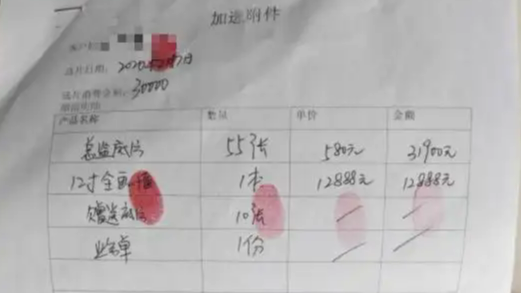 加选附件
选片日期:
选片消费金额: 30000
产品名称 数量 单价 金额
总监底片 55张 580元 31900元
12寸全 1本 12888元 12888元
赠送底片 10张 / /
1份 / /